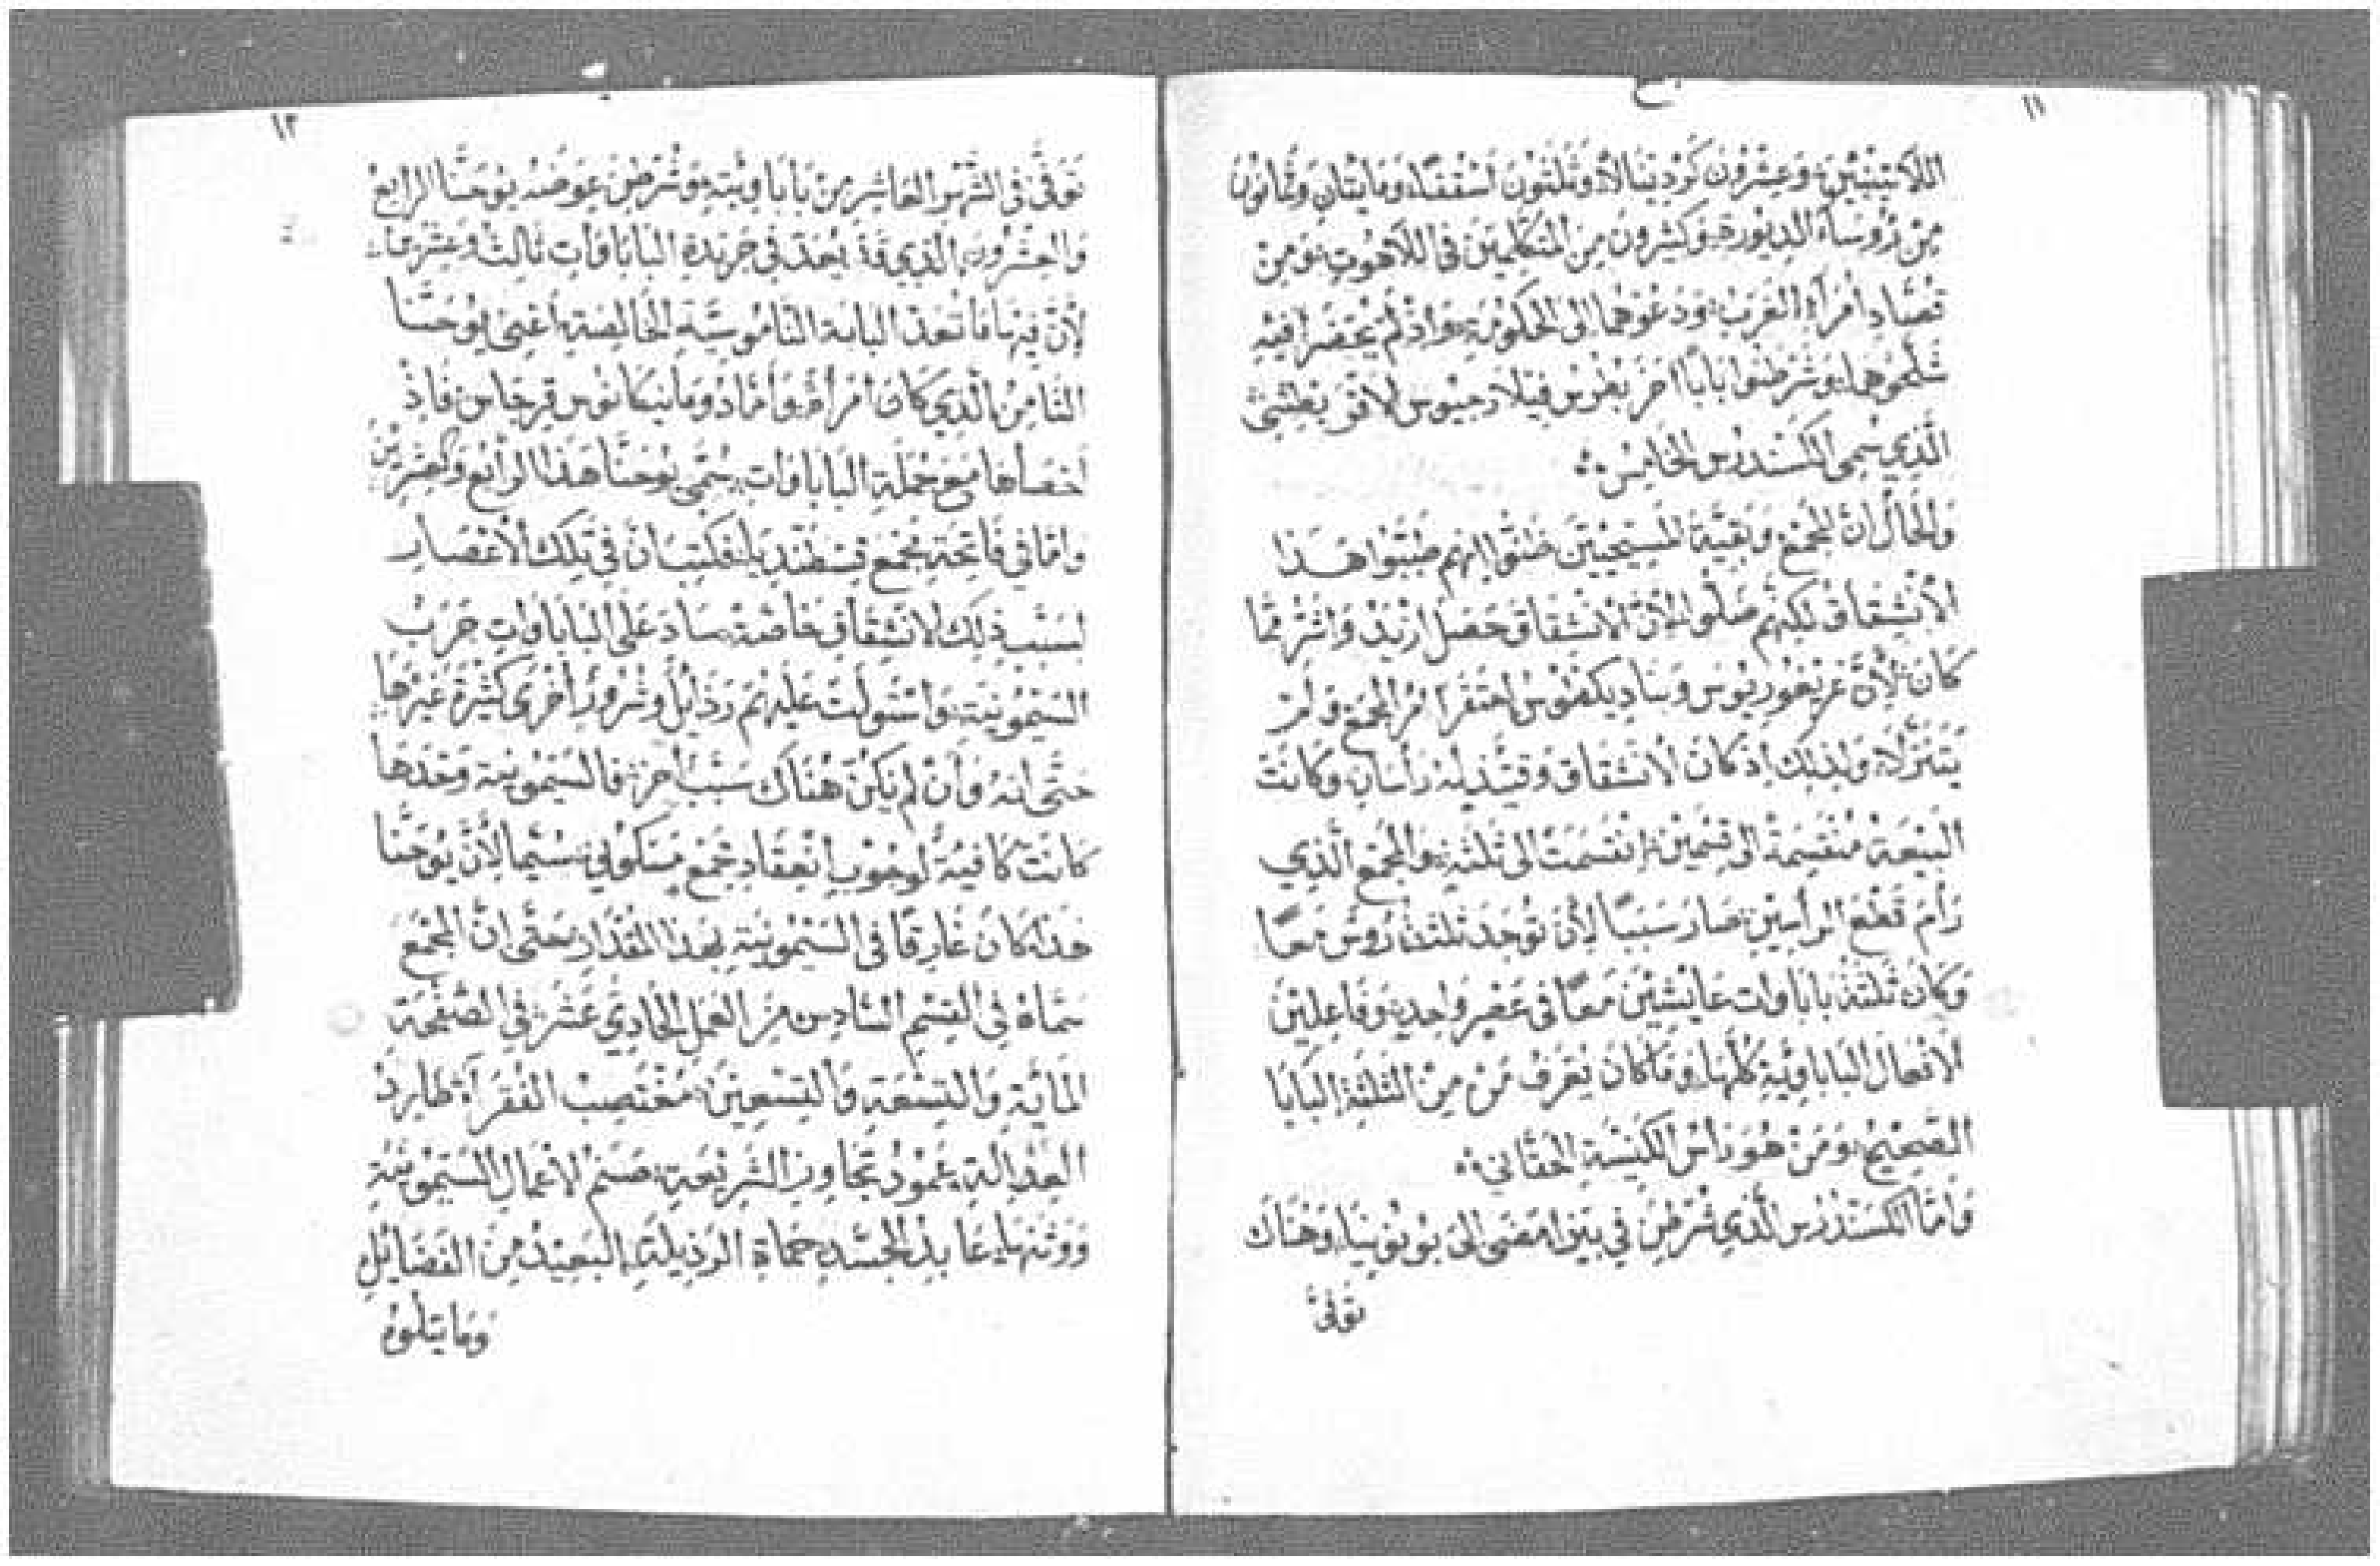 ١١
اللَاتِينِيِّينَ، وَعِشْرُونَ كَرْدِينَالًا، وَثَلَثُونَ أُسْقُفًا، وَمَايَتَانِ وَثَمَانُونَ
مِنْ رُوسَآءِ الدِيُورَةِ، وَكَثِيرُونَ مِنَ المُتَكَلِّمِينَ فِي اللَّاهُوتِ، وَمِنْ
قُصَّادِ أُمَرَآءِ الغَرْبِ، وَدَعَوْهُمَا إِلَى الحُكُومَةِ، وَإِذْ لَمْ يَحْضُرَا فِيهِ
شَلَحُوهُمَا، وَشَرْطَنُوا بَابًا آخَرَ بُطْرُسَ فِيلَارْجِيُوسَ
الَّذِي سُمِّيَ الكْسَنْدَرُسَ الخَامِسَ
وَالحَالُ أَنَّ المَجْمَعَ وَبَقِيَّةَ المَسِيحِيِّينَ ظَنُّوا أَنَّهُمْ هَذَا
الِانْشِقَاقَ، لَكِنَّهُمْ ضَلُّوا، لِأَنَّ الِانْشِقَاقَ حَصَلَ أَزْيَدَ وَأَشَرَّ مِمَّا
كَانَ، لِأَنَّ غْرِيغُورِيُوسَ وَبَنَادِيكْتُوسَ احْتَقَرَا أَمْرَ المَجْمَعِ وَلَمْ
يَتَنَزَّلَا، وَلِذَلِكَ إِذْ كَانَ الِانْشِقَاقُ وَقْتَئِذٍ لَهُ رَأْسَانِ، وَكَانَتْ
البِيعَةُ مُنْقَسِمَةً إِلَى قِسْمَيْنِ، انْقَسَمَتْ إِلَى ثَلَثَةٍ، وَالمَجْمَعُ الَّذِي
رَامَ قَطْعَ الرَأْسَيْنِ، صَارَ سَبَبًا لِأَنْ تُوجَدَ ثَلَثَةُ رُوسٍ مَعًا
وَكَانَ ثَلَثَةُ بَابَاوَاتٍ عَايِشِينَ مَعًا فِي عَصْرٍ وَاحِدٍ، وَفَاعِلِينَ
الأَفْعَالَ البَابَاوِيَّةَ كُلَّهَا، وَمَا كَانَ يُعْرَفُ مَنْ مِنَ الثَلَثَةِ البَابَا
الصَحِيحُ، وَمَنْ هُوَ رَأْسُ الكَنِيسَةِ الحَقَّانِي
وَأَمَّا الكْسَنْدَرُسُ الَّذِي شُرْطِنَ فِي بِيزَا مَضَى إِلَى بُونُونِيَا، وَهُنَاكَ
تُوفِّيَ
١٢
تُوفِّيَ فِي الشَّهْرِ العَاشِرِ مِنْ بَابَاوِيَّتِهِ، وَشُرْطِنَ عِوَضَهُ يُوحَنَّا الرَابِعُ
وَالعِشْرُونَ، الَّذِي قَدْ يُعَدُّ فِي جَرِيدَةِ البَابَاوَاتِ ثَالِثَ وَعِشْرِينَ
لِأَنَّ فِيهَا مَا تُعَدُّ البَابَةُ النَّامُوسِيَّةُ الخَالِصَةُ، أَعْنِي يُوحَنَّا
الثَامِنَ، الَّذِي كَانَ امْرَأَةً، فَإِذْ
أَحْصَاهَا مَعَ جُمْلَةِ البَابَاوَاتِ، سُمِّيَ يُوحَنَّا هَذَا الرَابِعَ وَالعِشْرِينَ
وَأَمَّا فِي فَاتِحَةِ مَجْمَعِ فَكُتِبَ أَنَّ فِي تِلْكَ الأَعْصَارِ
بِسَبَبِ ذَلِكَ الِانْشِقَاقِ خَاصَّةً، سَادَ عَلَى البَابَاوَاتِ جَرَبُ
السِّيمُونِيَّةِ، وَاسْتَوْلَتْ عَلَيْهِمْ رَذَايِلُ وَشُرُورٌ أُخْرَى كَثِيرَةٌ غَيْرُهَا
حَتَّى أَنَّهُ وَأَنْ لَمْ يَكُنْ هُنَاكَ سَبَبٌ آخَرُ، فَالسِّيمُونِيَّةُ وَحْدَهَا
كَانَتْ كَافِيَةً لِوُجُوبِ انْعِقَادِ مَجْمَعٍ مَسْكُونِي، سِيَّمَا لِأَنَّ يُوحَنَّا
هَذَا كَانَ غَارِقًا فِي السِّيمُونِيَّةِ بِهَذَا المِقْدَارِ، حَتَّى أَنَّ المَجْمَعَ
سَمَّاهُ فِي القِسْمِ السَّادِسِ مِنَ العَمَلِ الحَادِي عَشَرَ، فِي الصَّفْحَةِ
المَايَةِ وَالتِسْعَةِ وَالتِسْعِينَ، مُغْتَصِبَ الفُقَرَآءِ، طَارِدَ
العَدَالَةِ، عَمُودَ تَجَاوُزِ الشَّرِيعَةِ، صَنَمَ لأَعْمَالِ السِّيمُونِيَّةِ
وَوَثَنَهَا، عَابِدَ الجَسَدِ، حَمَاةَ الرَذِيلَةِ، البَعِيدَ مِنَ الفَضَايِلِ
وَمَا يَتْلُوهُ